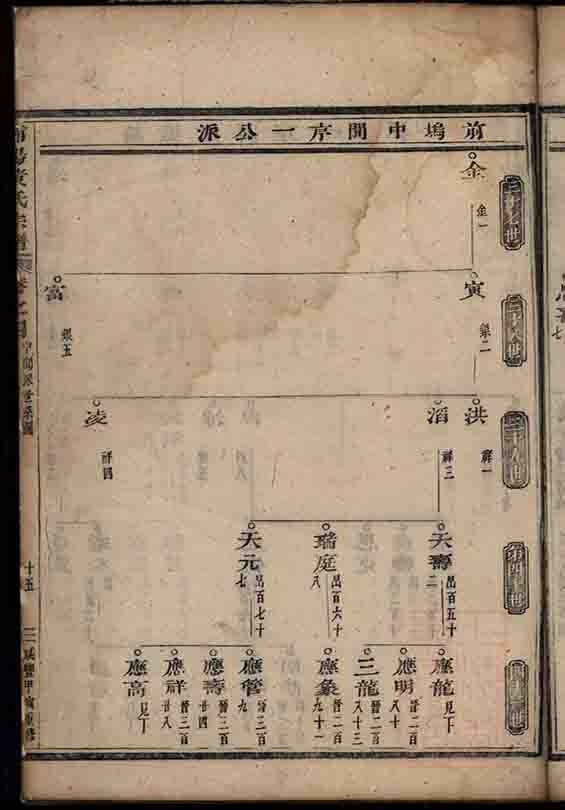 前塢中閒序一公派
三十七世
金
金一
三十八世
寅
銀二
富
銀五
三十九世
洪
祥一
滔
祥三
凌
祥四
第四十世
天壽
萬百五十二
瑞庭
萬百六十八
天元
萬百七十七
應龍
見下
應明
晉二百八十
三龍
晉二百八十三
應象
晉二百九十一
應管
晉三百九
應壽
晉三百廿四
應祥
晉三百廿八
應高
見下
中閒派世系圖
十五
咸豐甲寅重修